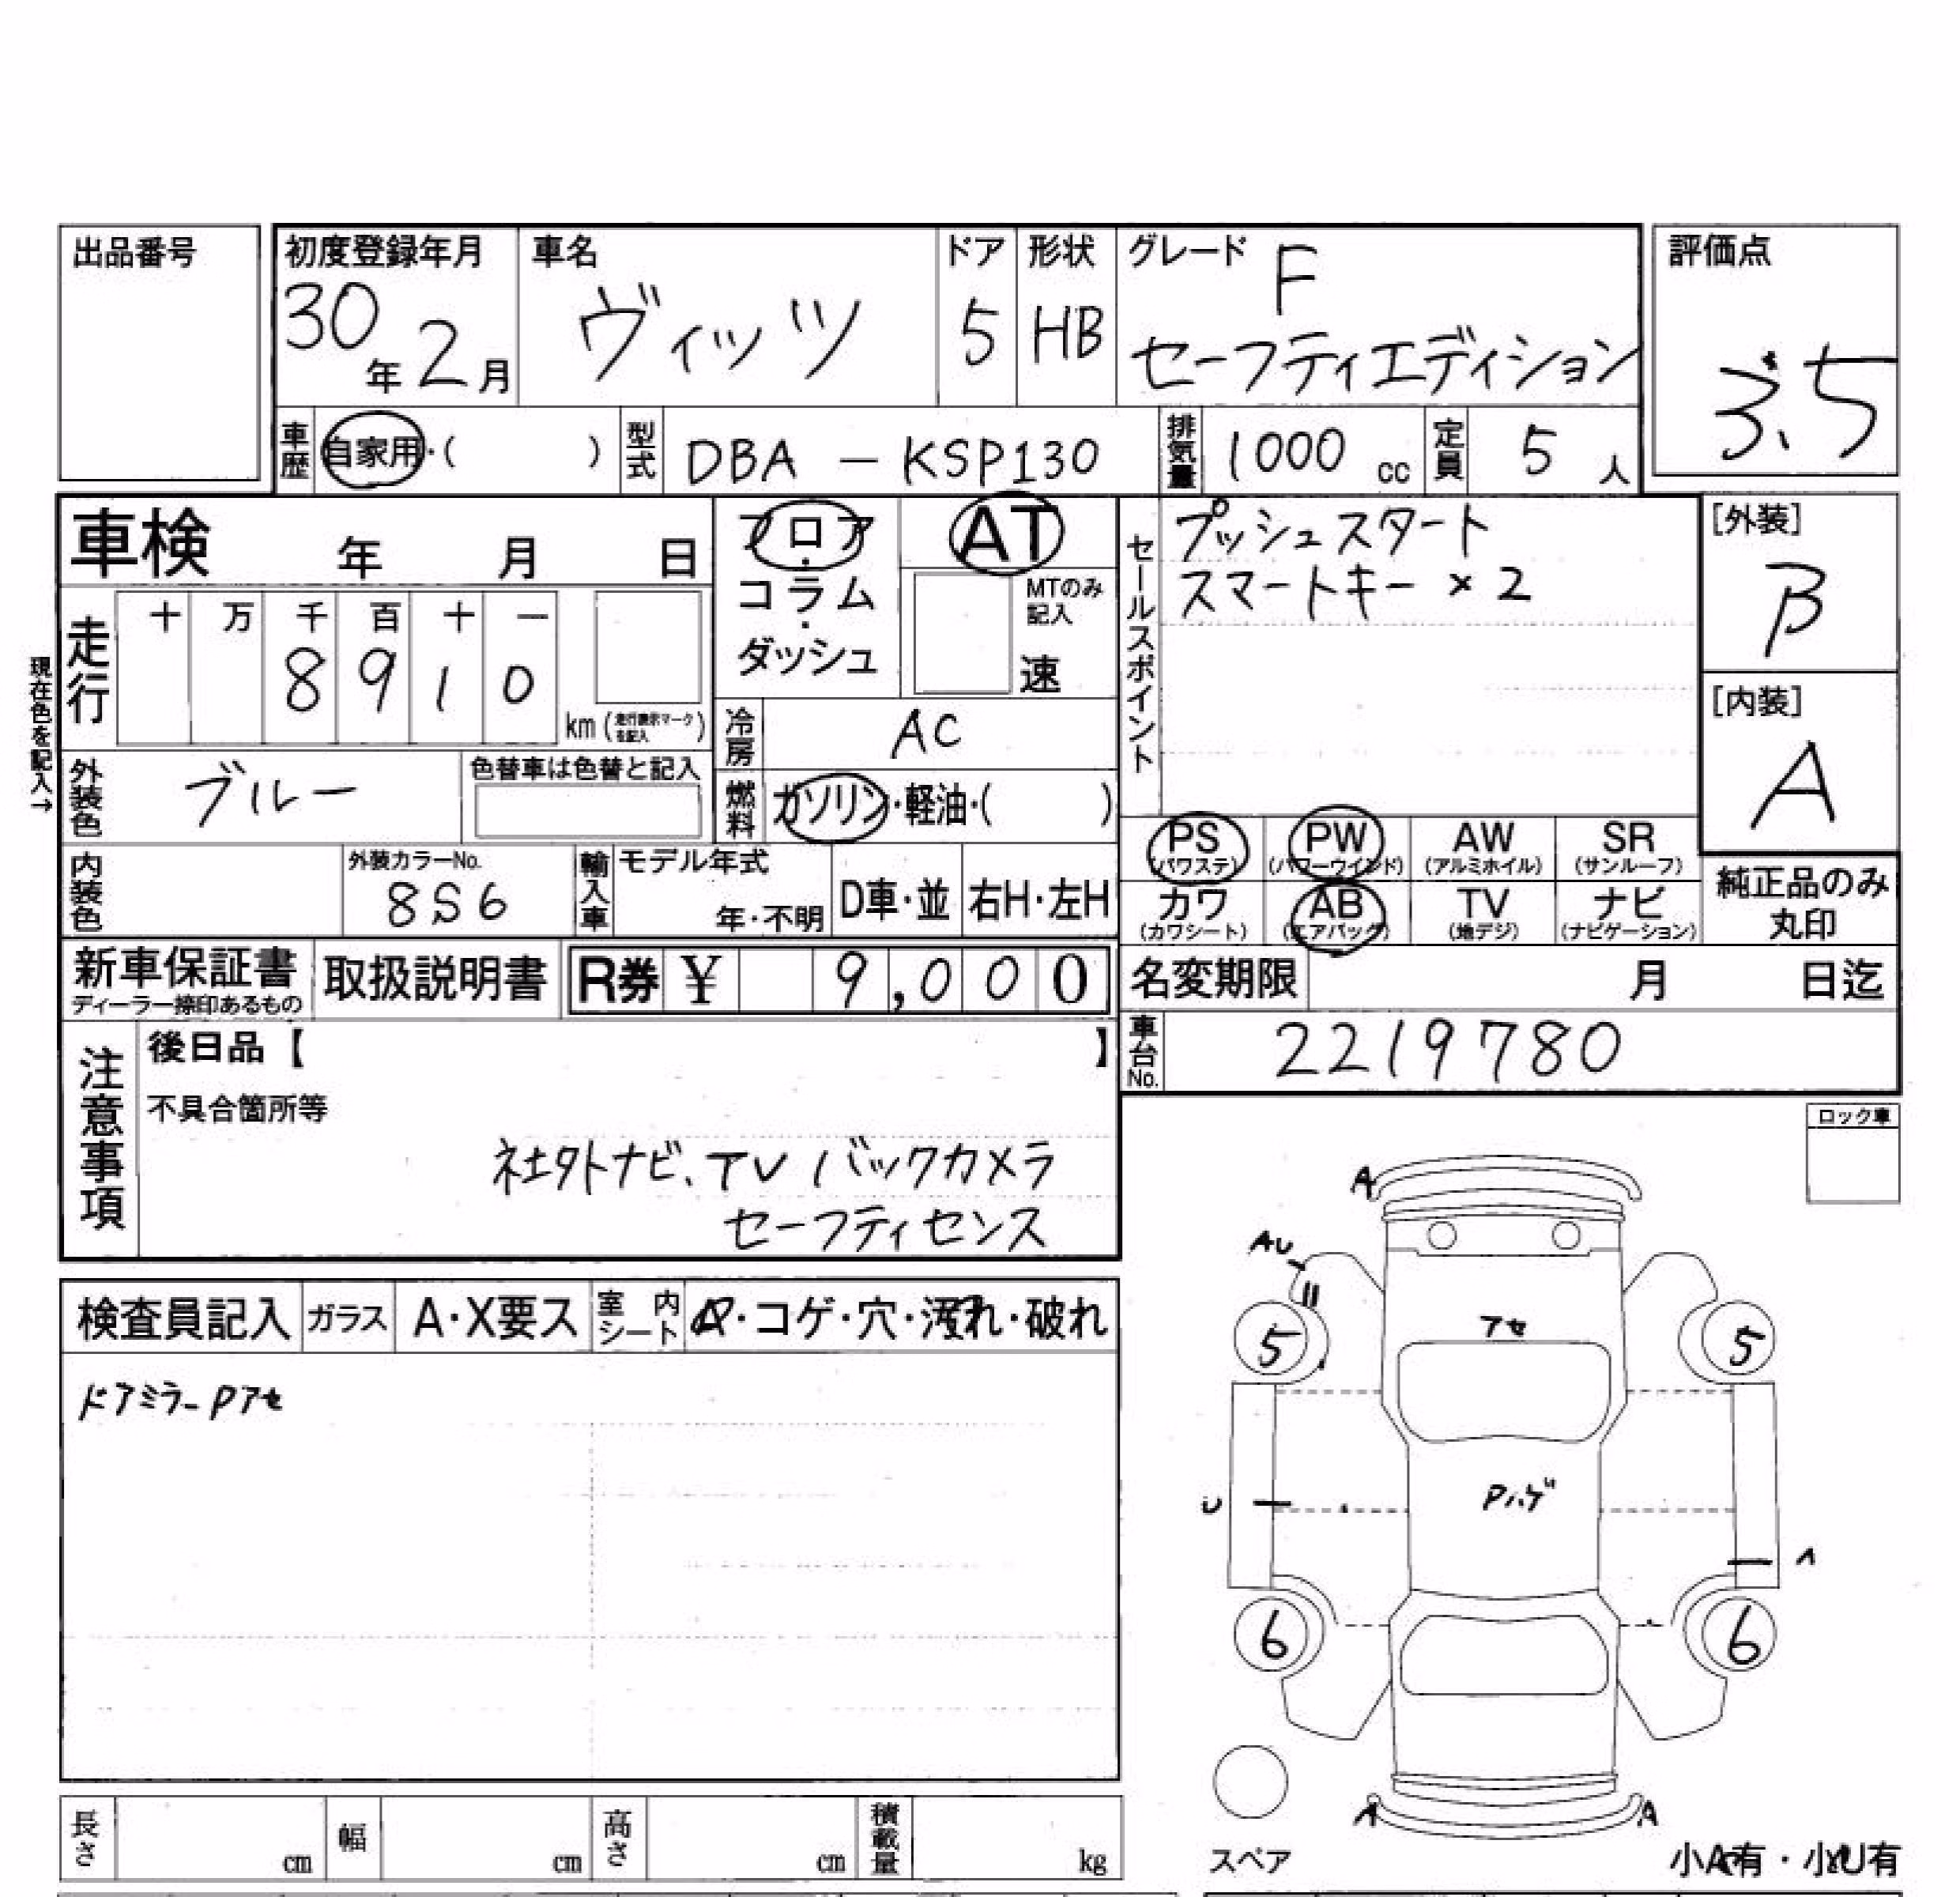 出品番号
初度登録年月 車名 ドア 形状 グレード 評価点
30年2月 ヴィッツ 5 HB F
セーフティエディション
3.5
車歴 自家用・( ) 型式 DBA-KSP130 排気量 1000 cc 定員 5 人
車検 年 月 日
フロア・コラム・ダッシュ
AT
MTのみ記入
速
現在色を記入→
走行 十 万 千 百 十 一
8 9 1 0 km (走行表示マークを記入)
冷房 AC
外装色 ブルー 色替車は色替と記入
燃料 ガソリン・軽油・( )
内装色 外装カラーNo. 8S6
輸入車 モデル年式 年・不明 D車・並 右H・左H
新車保証書 取扱説明書 R券 ¥ 9,000
ディーラー捺印あるもの
セールスポイント
プッシュスタート
スマートキー×2
[外装]
B
[内装]
A
PS (パワステ) PW (パワーウインド) AW (アルミホイル) SR (サンルーフ)
カワ (カワシート) AB (エアバッグ) TV (地デジ) ナビ (ナビゲーション)
純正品のみ
丸印
名変期限 月 日迄
車台No. 2219780
注意事項
後日品【 】
不具合箇所等
社外ナビ、TV バックカメラ
セーフティセンス
検査員記入 ガラス A・X要ス 室内シート ・コゲ・穴・汚れ・破れ
ドアミラーPアセ
ロック車
A
AU
アセ
5 5
Pハゲ
U
A
6 6
A A
スペア
小A有・小U有
長さ cm 幅 cm 高さ cm 積載量 kg